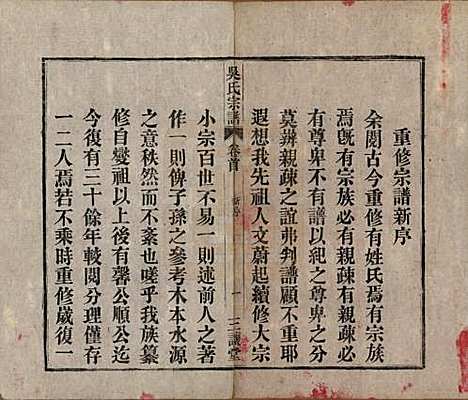 重修宗譜新序
余閱古今重修有姓氏焉有宗族
焉既有宗族必有親疎有親疎必
有尊卑不有譜以紀之尊卑之分
莫辨親疎之誼弗判譜顧不重耶
遐想我先祖人文蔚起續修大宗
吳氏宗譜
卷首
新序
一
三讓堂
小宗百世不易一則述前人之著
作一則俾子孫之參考木本水源
之意秩然而不紊也嗟乎我族纂
修自燮祖以上後有馨公順公迄
今復有三十餘年較閱分理僅存
一二人焉若不乘時重修歲復一